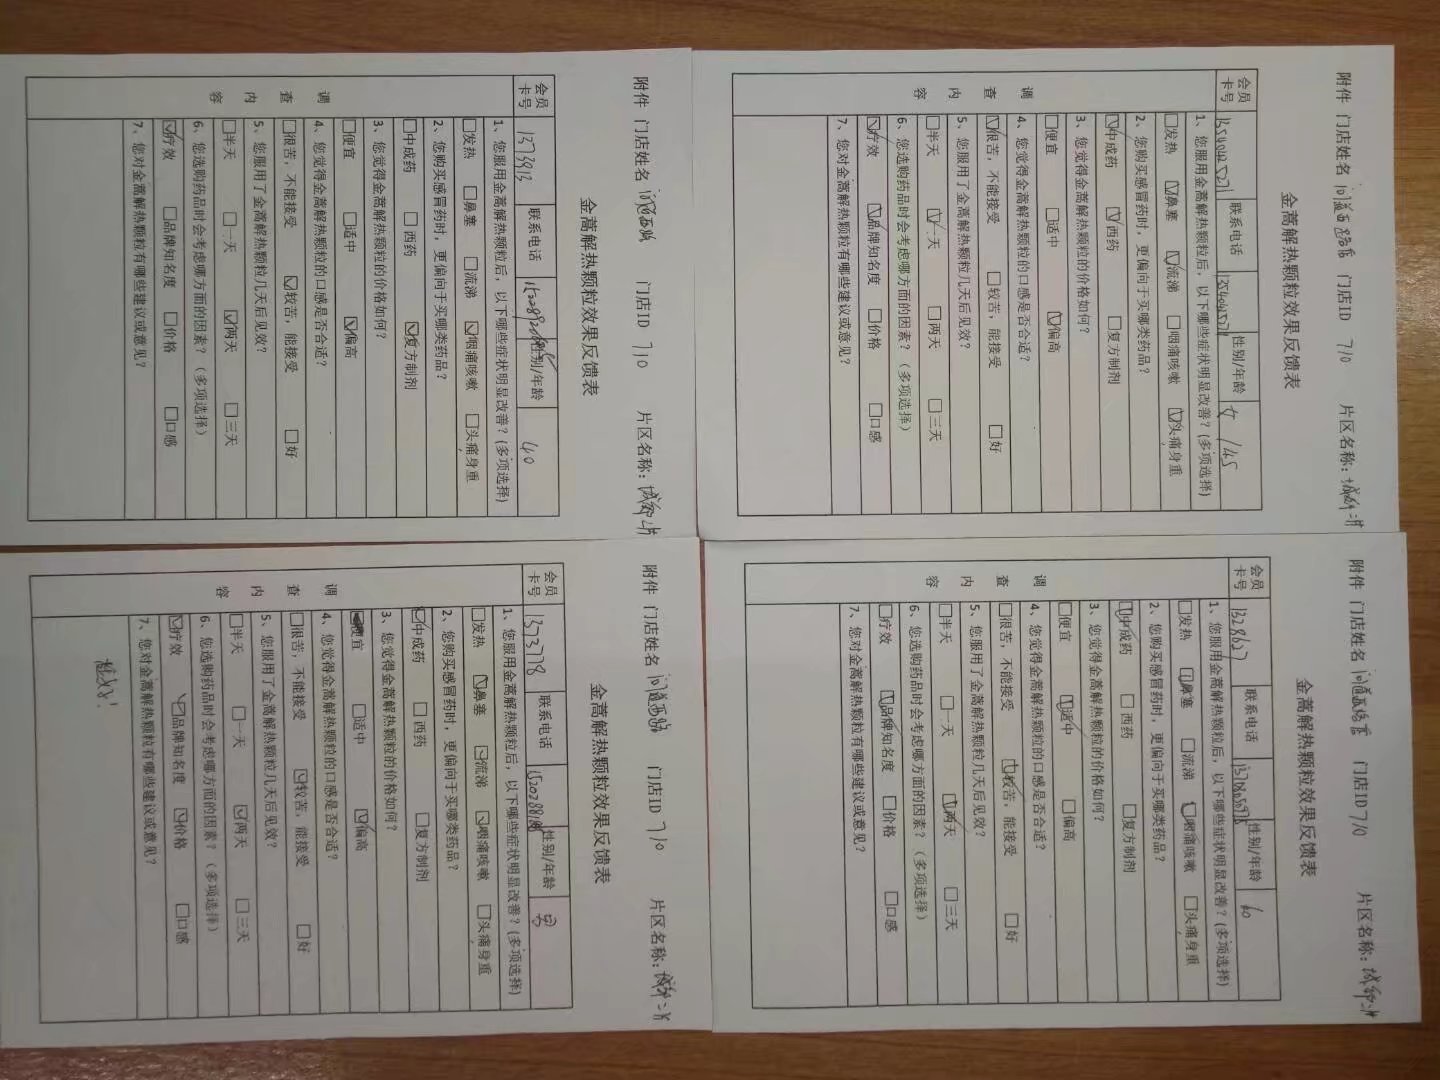 附件 门店姓名 问道西路店 门店ID 710 片区名称：城郊二片
金蒿解热颗粒效果反馈表
会员卡号 联系电话 性别/年龄 女/45
调查内容
1、您服用金蒿解热颗粒后，以下哪些症状明显改善？(多项选择)
□发热 ☑鼻塞 ☑流涕 □咽痛咳嗽 ☑头痛身重
2、您购买感冒药时，更偏向于买哪类药品？
☑中成药 ☑西药 □复方制剂
3、您觉得金蒿解热颗粒的价格如何？
□便宜 □适中 ☑偏高
4、您觉得金蒿解热颗粒的口感是否合适？
☑很苦，不能接受 □较苦，能接受 □好
5、您服用了金蒿解热颗粒几天后见效？
□半天 ☑一天 □两天 □三天
6、您选购药品时会考虑哪方面的因素？（多项选择）
☑疗效 ☑品牌知名度 □价格 □口感
7、您对金蒿解热颗粒有哪些建议或意见？
附件 门店姓名 门店ID 710 片区名称：
金蒿解热颗粒效果反馈表
会员卡号 1373913 联系电话 性别/年龄 40
调查内容
1、您服用金蒿解热颗粒后，以下哪些症状明显改善？(多项选择)
□发热 □鼻塞 □流涕 ☑咽痛咳嗽 □头痛身重
2、您购买感冒药时，更偏向于买哪类药品？
□中成药 □西药 ☑复方制剂
3、您觉得金蒿解热颗粒的价格如何？
□便宜 □适中 ☑偏高
4、您觉得金蒿解热颗粒的口感是否合适？
□很苦，不能接受 ☑较苦，能接受 □好
5、您服用了金蒿解热颗粒几天后见效？
□半天 □一天 ☑两天 □三天
6、您选购药品时会考虑哪方面的因素？（多项选择）
☑疗效 □品牌知名度 □价格 □口感
7、您对金蒿解热颗粒有哪些建议或意见？
附件 门店姓名 问道西路店 门店ID 710 片区名称：城郊二片
金蒿解热颗粒效果反馈表
会员卡号 1328627 联系电话 性别/年龄 60
调查内容
1、您服用金蒿解热颗粒后，以下哪些症状明显改善？(多项选择)
□发热 ☑鼻塞 □流涕 ☑咽痛咳嗽 □头痛身重
2、您购买感冒药时，更偏向于买哪类药品？
☑中成药 □西药 □复方制剂
3、您觉得金蒿解热颗粒的价格如何？
□便宜 ☑适中 □偏高
4、您觉得金蒿解热颗粒的口感是否合适？
□很苦，不能接受 ☑较苦，能接受 □好
5、您服用了金蒿解热颗粒几天后见效？
□半天 □一天 ☑两天 □三天
6、您选购药品时会考虑哪方面的因素？（多项选择）
□疗效 ☑品牌知名度 □价格 □口感
7、您对金蒿解热颗粒有哪些建议或意见？
附件 门店姓名 门店ID 710 片区名称：城郊二片
金蒿解热颗粒效果反馈表
会员卡号 1373778 联系电话 性别/年龄 男
调查内容
1、您服用金蒿解热颗粒后，以下哪些症状明显改善？(多项选择)
□发热 ☑鼻塞 ☑流涕 ☑咽痛咳嗽 □头痛身重
2、您购买感冒药时，更偏向于买哪类药品？
☑中成药 □西药 □复方制剂
3、您觉得金蒿解热颗粒的价格如何？
便宜 □适中 ☑偏高
4、您觉得金蒿解热颗粒的口感是否合适？
□很苦，不能接受 ☑较苦，能接受 □好
5、您服用了金蒿解热颗粒几天后见效？
□半天 □一天 ☑两天 □三天
6、您选购药品时会考虑哪方面的因素？（多项选择）
☑疗效 ☑品牌知名度 ☑价格 □口感
7、您对金蒿解热颗粒有哪些建议或意见？